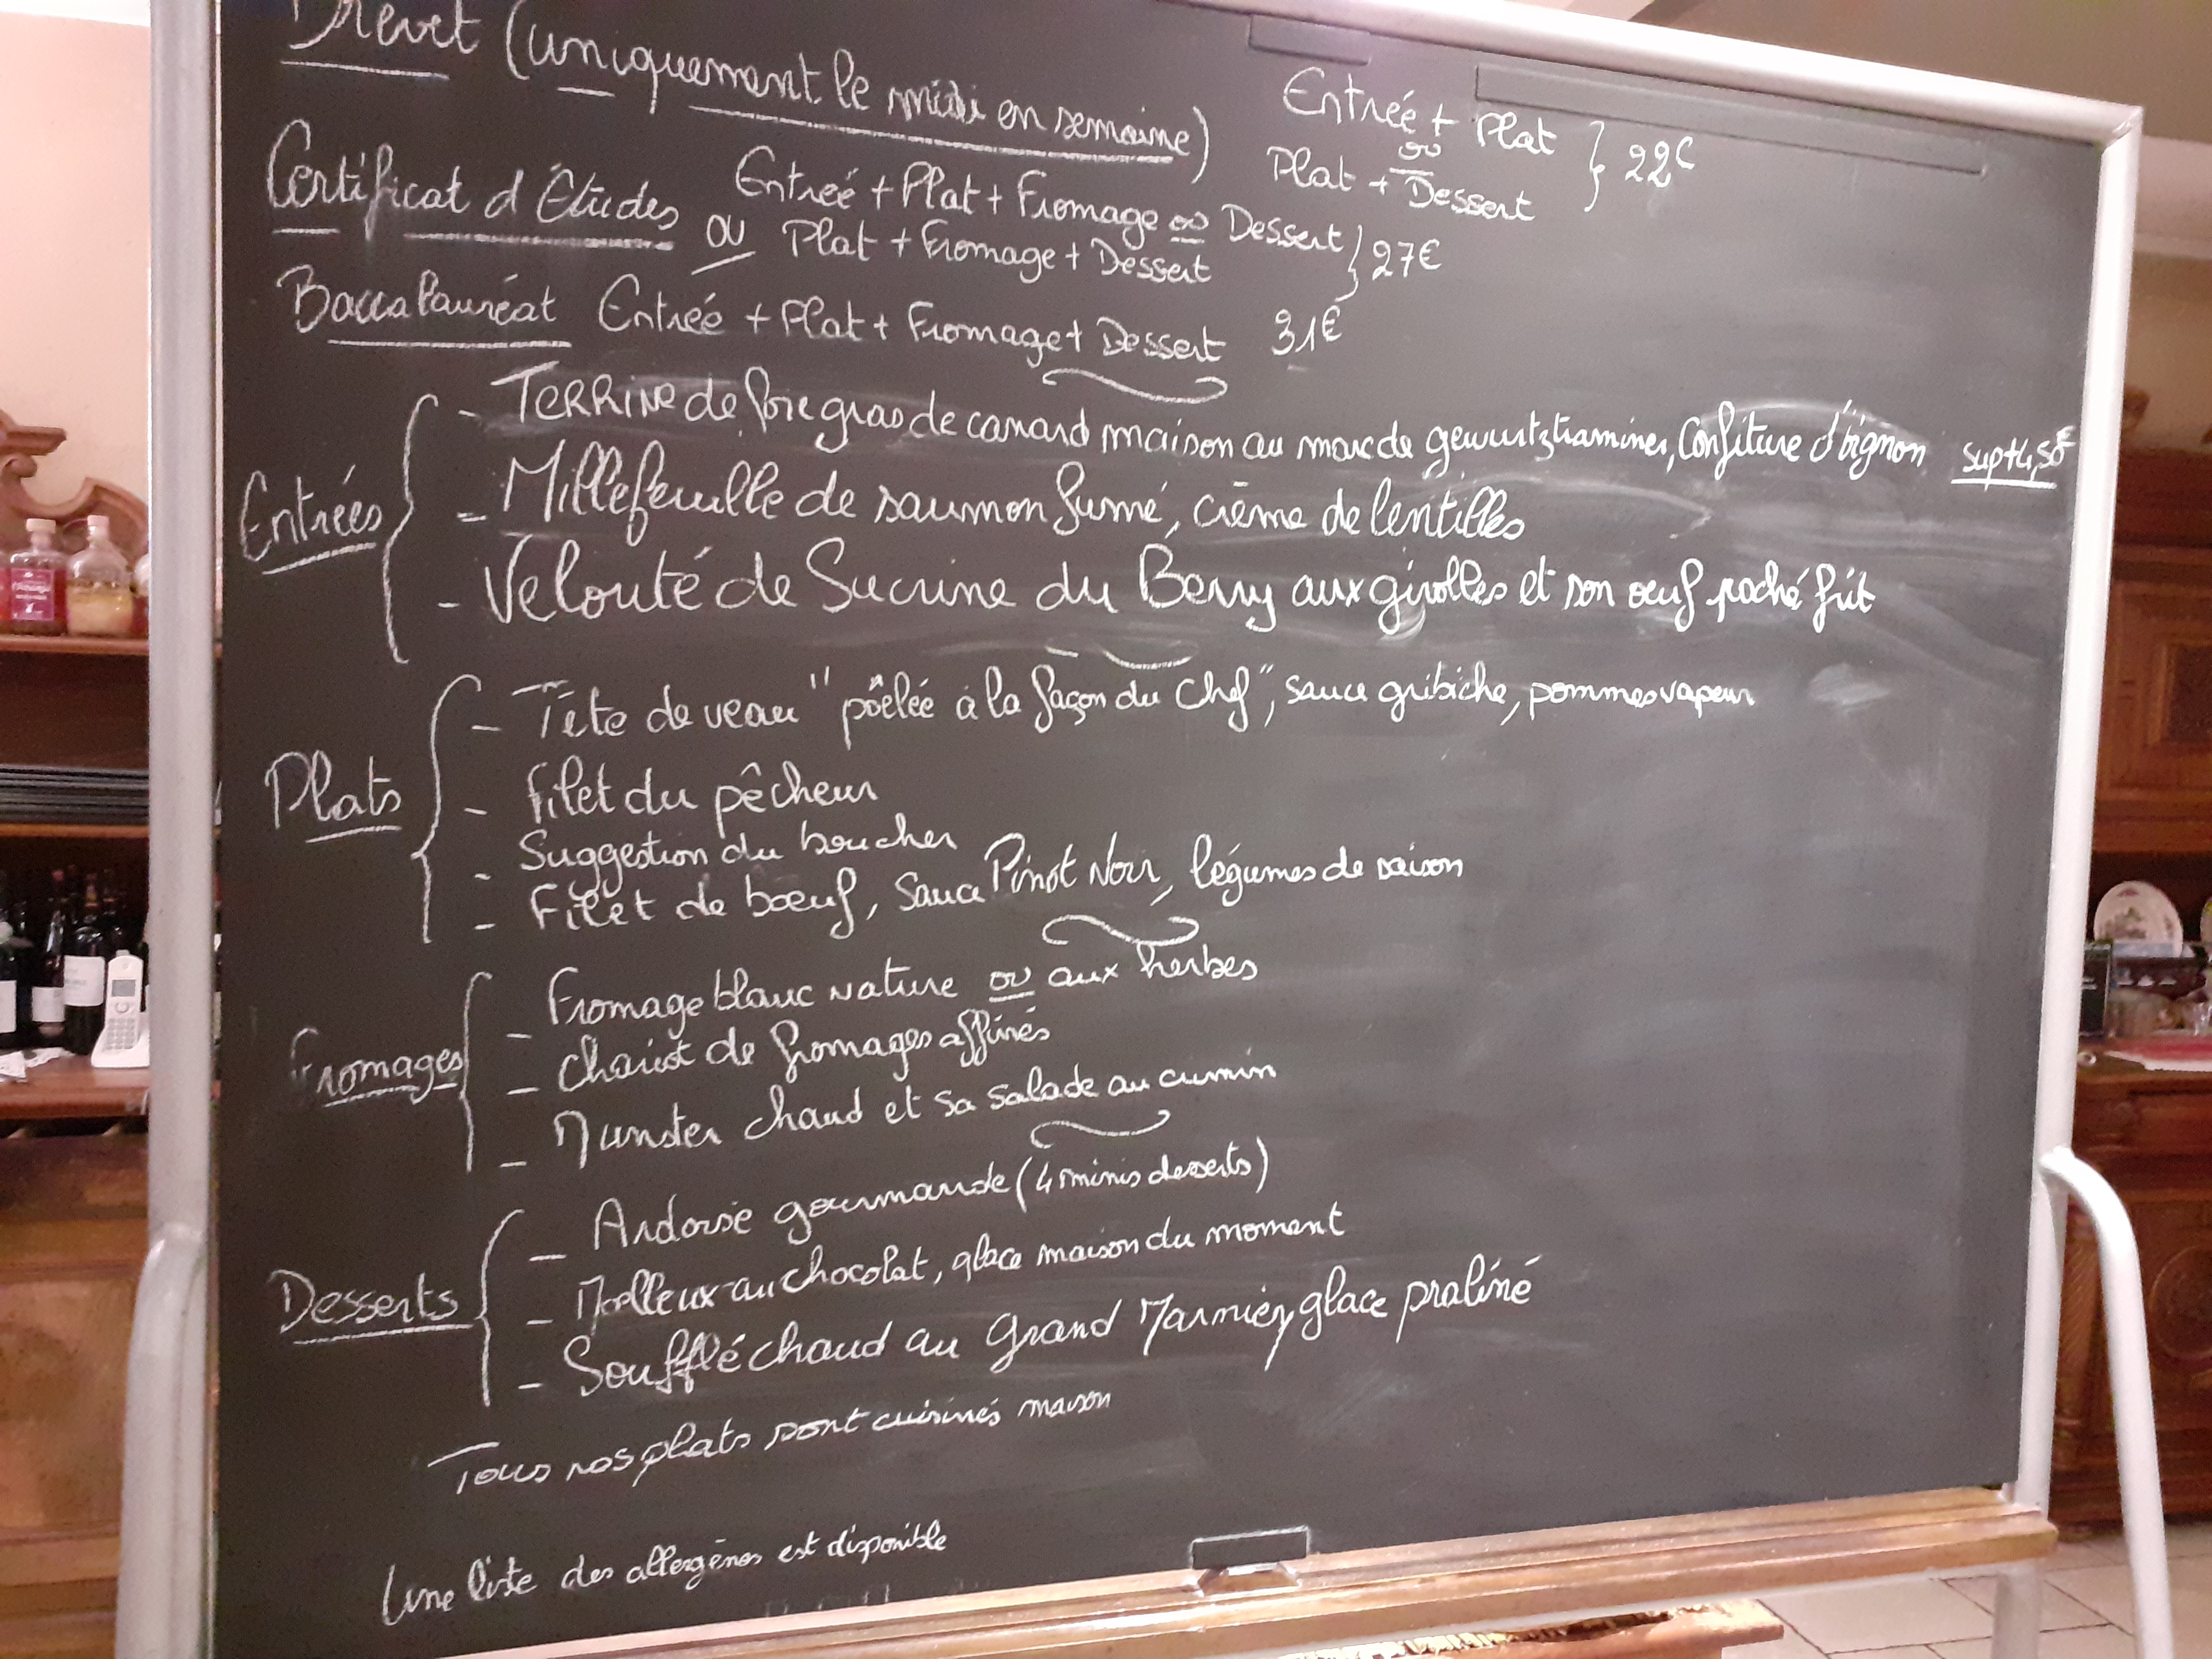 Brevet (uniquement le midi en semaine)
Entrée + Plat
ou
Plat + Dessert
} 22€
Certificat d'Études
Entrée + Plat + Fromage ou Dessert
OU Plat + Fromage + Dessert
} 27€
Baccalauréat Entrée + Plat + Fromage + Dessert 31€
Entrées
- Terrine de foie gras de canard maison au marc de gewurtztraminer, Confiture d'oignon supt 4,50€
- Millefeuille de saumon fumé, crème de lentilles
- Velouté de Sucrine du Berry aux girolles et son oeuf poché frit
Plats
- Tête de veau "pôelée à la façon du Chef", sauce gribiche, pommes vapeur
- Filet du pêcheur
- Suggestion du boucher
- Filet de boeuf, Sauce Pinot Noir, légumes de saison
Fromages
- Fromage blanc nature ou aux herbes
- Chariot de fromages affinés
- Munster chaud et sa salade au cumin
Desserts
- Ardoise gourmande (4 minis desserts)
- Moelleux au chocolat, glace maison du moment
- Soufflé chaud au Grand Marnier, glace praliné
Tous nos plats sont cuisinés maison
Une liste des allergènes est disponible